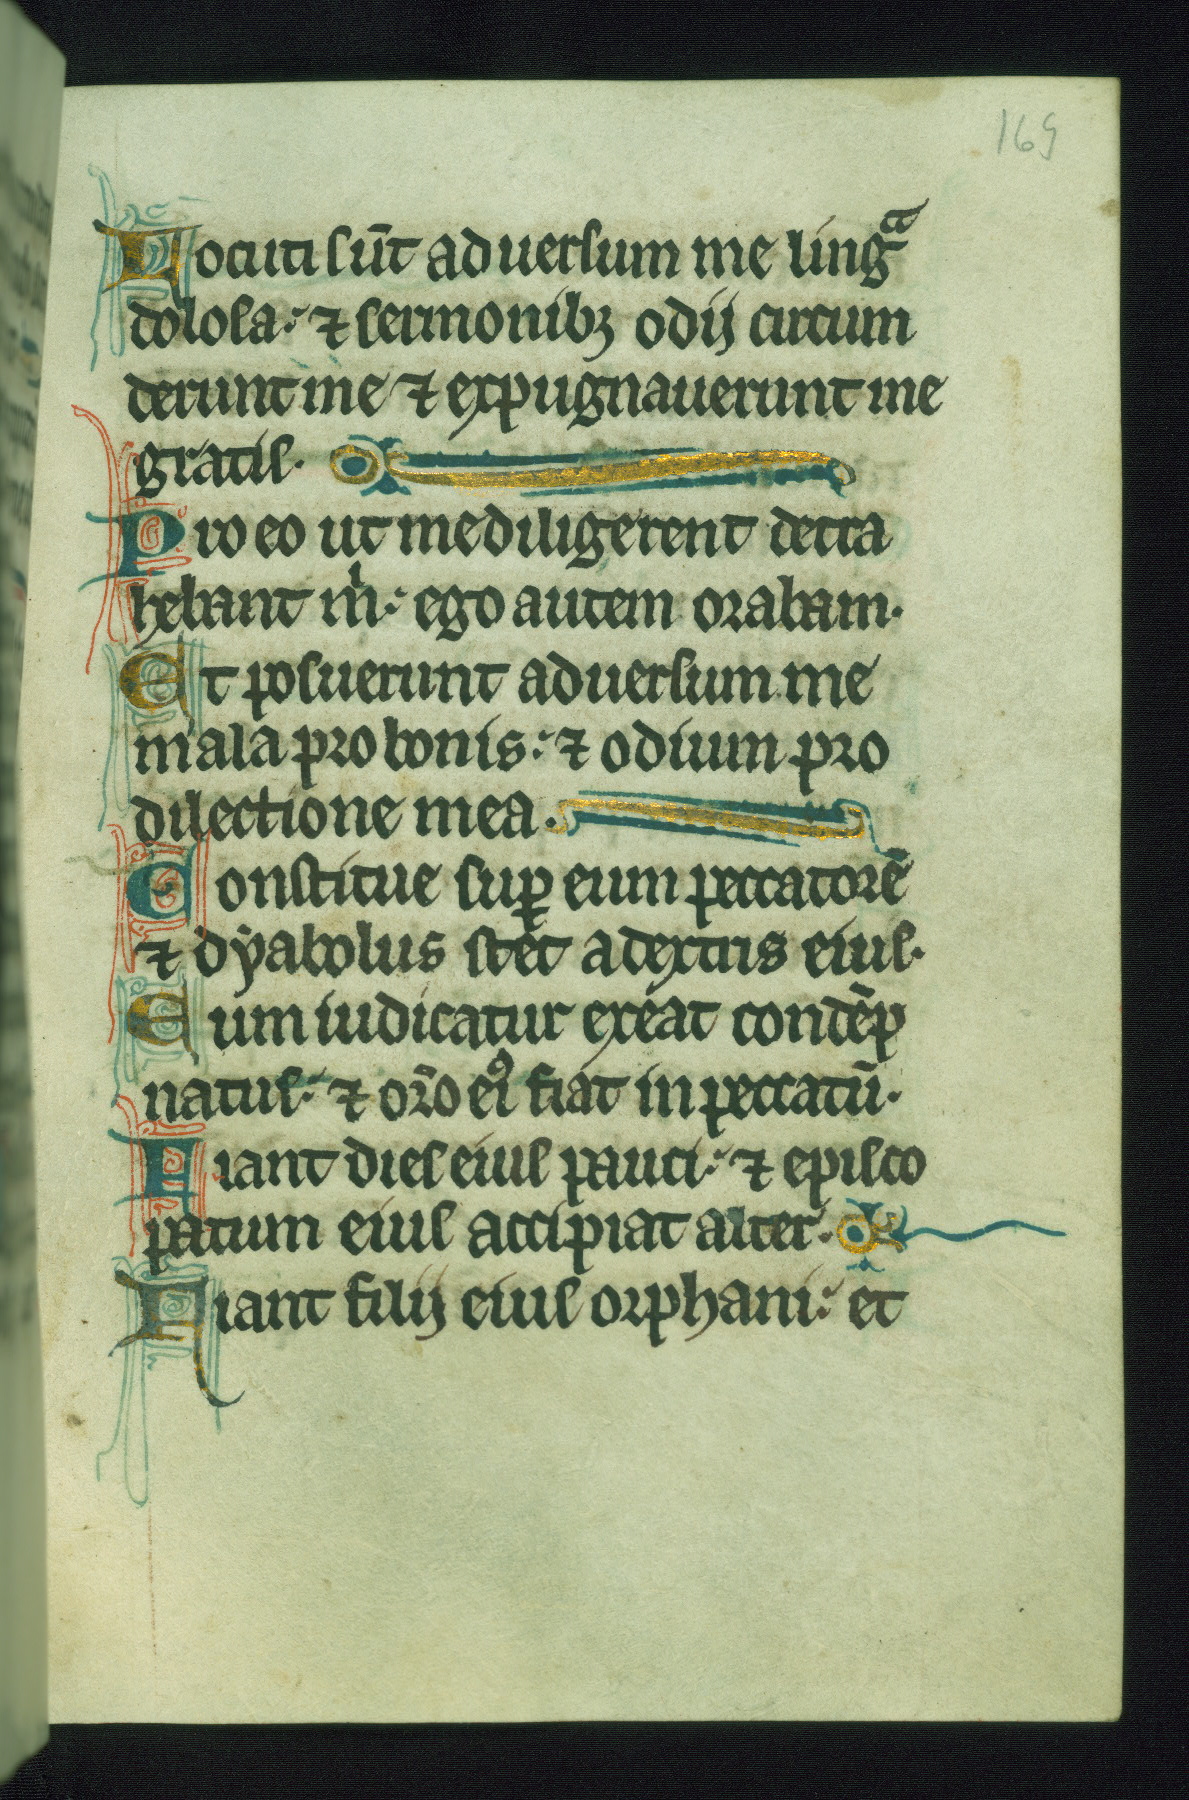 169
Locuti sūt aduersum me lingᵃ
dolosa: ⁊ sermonibꝫ odij circum
derunt me ⁊ expugnauerunt me
gratis.
Pro eo ut me diligerent detra
hebant mⁱ: ego autem orabam.
Et posuerunt aduersum me
mala pro bonis: ⁊ odium pro
dilectione mea.
Constitue suꝑ eum peccatorē
⁊ dyabolus stet a dextris eius.
Cum iudicatur exeat condēp
natus: ⁊ or̄o eiꝰ fiat in peccatū.
Fiant dies eius pauci: ⁊ episco
patum eius accipiat alter.
Fiant filij eius orphani: et